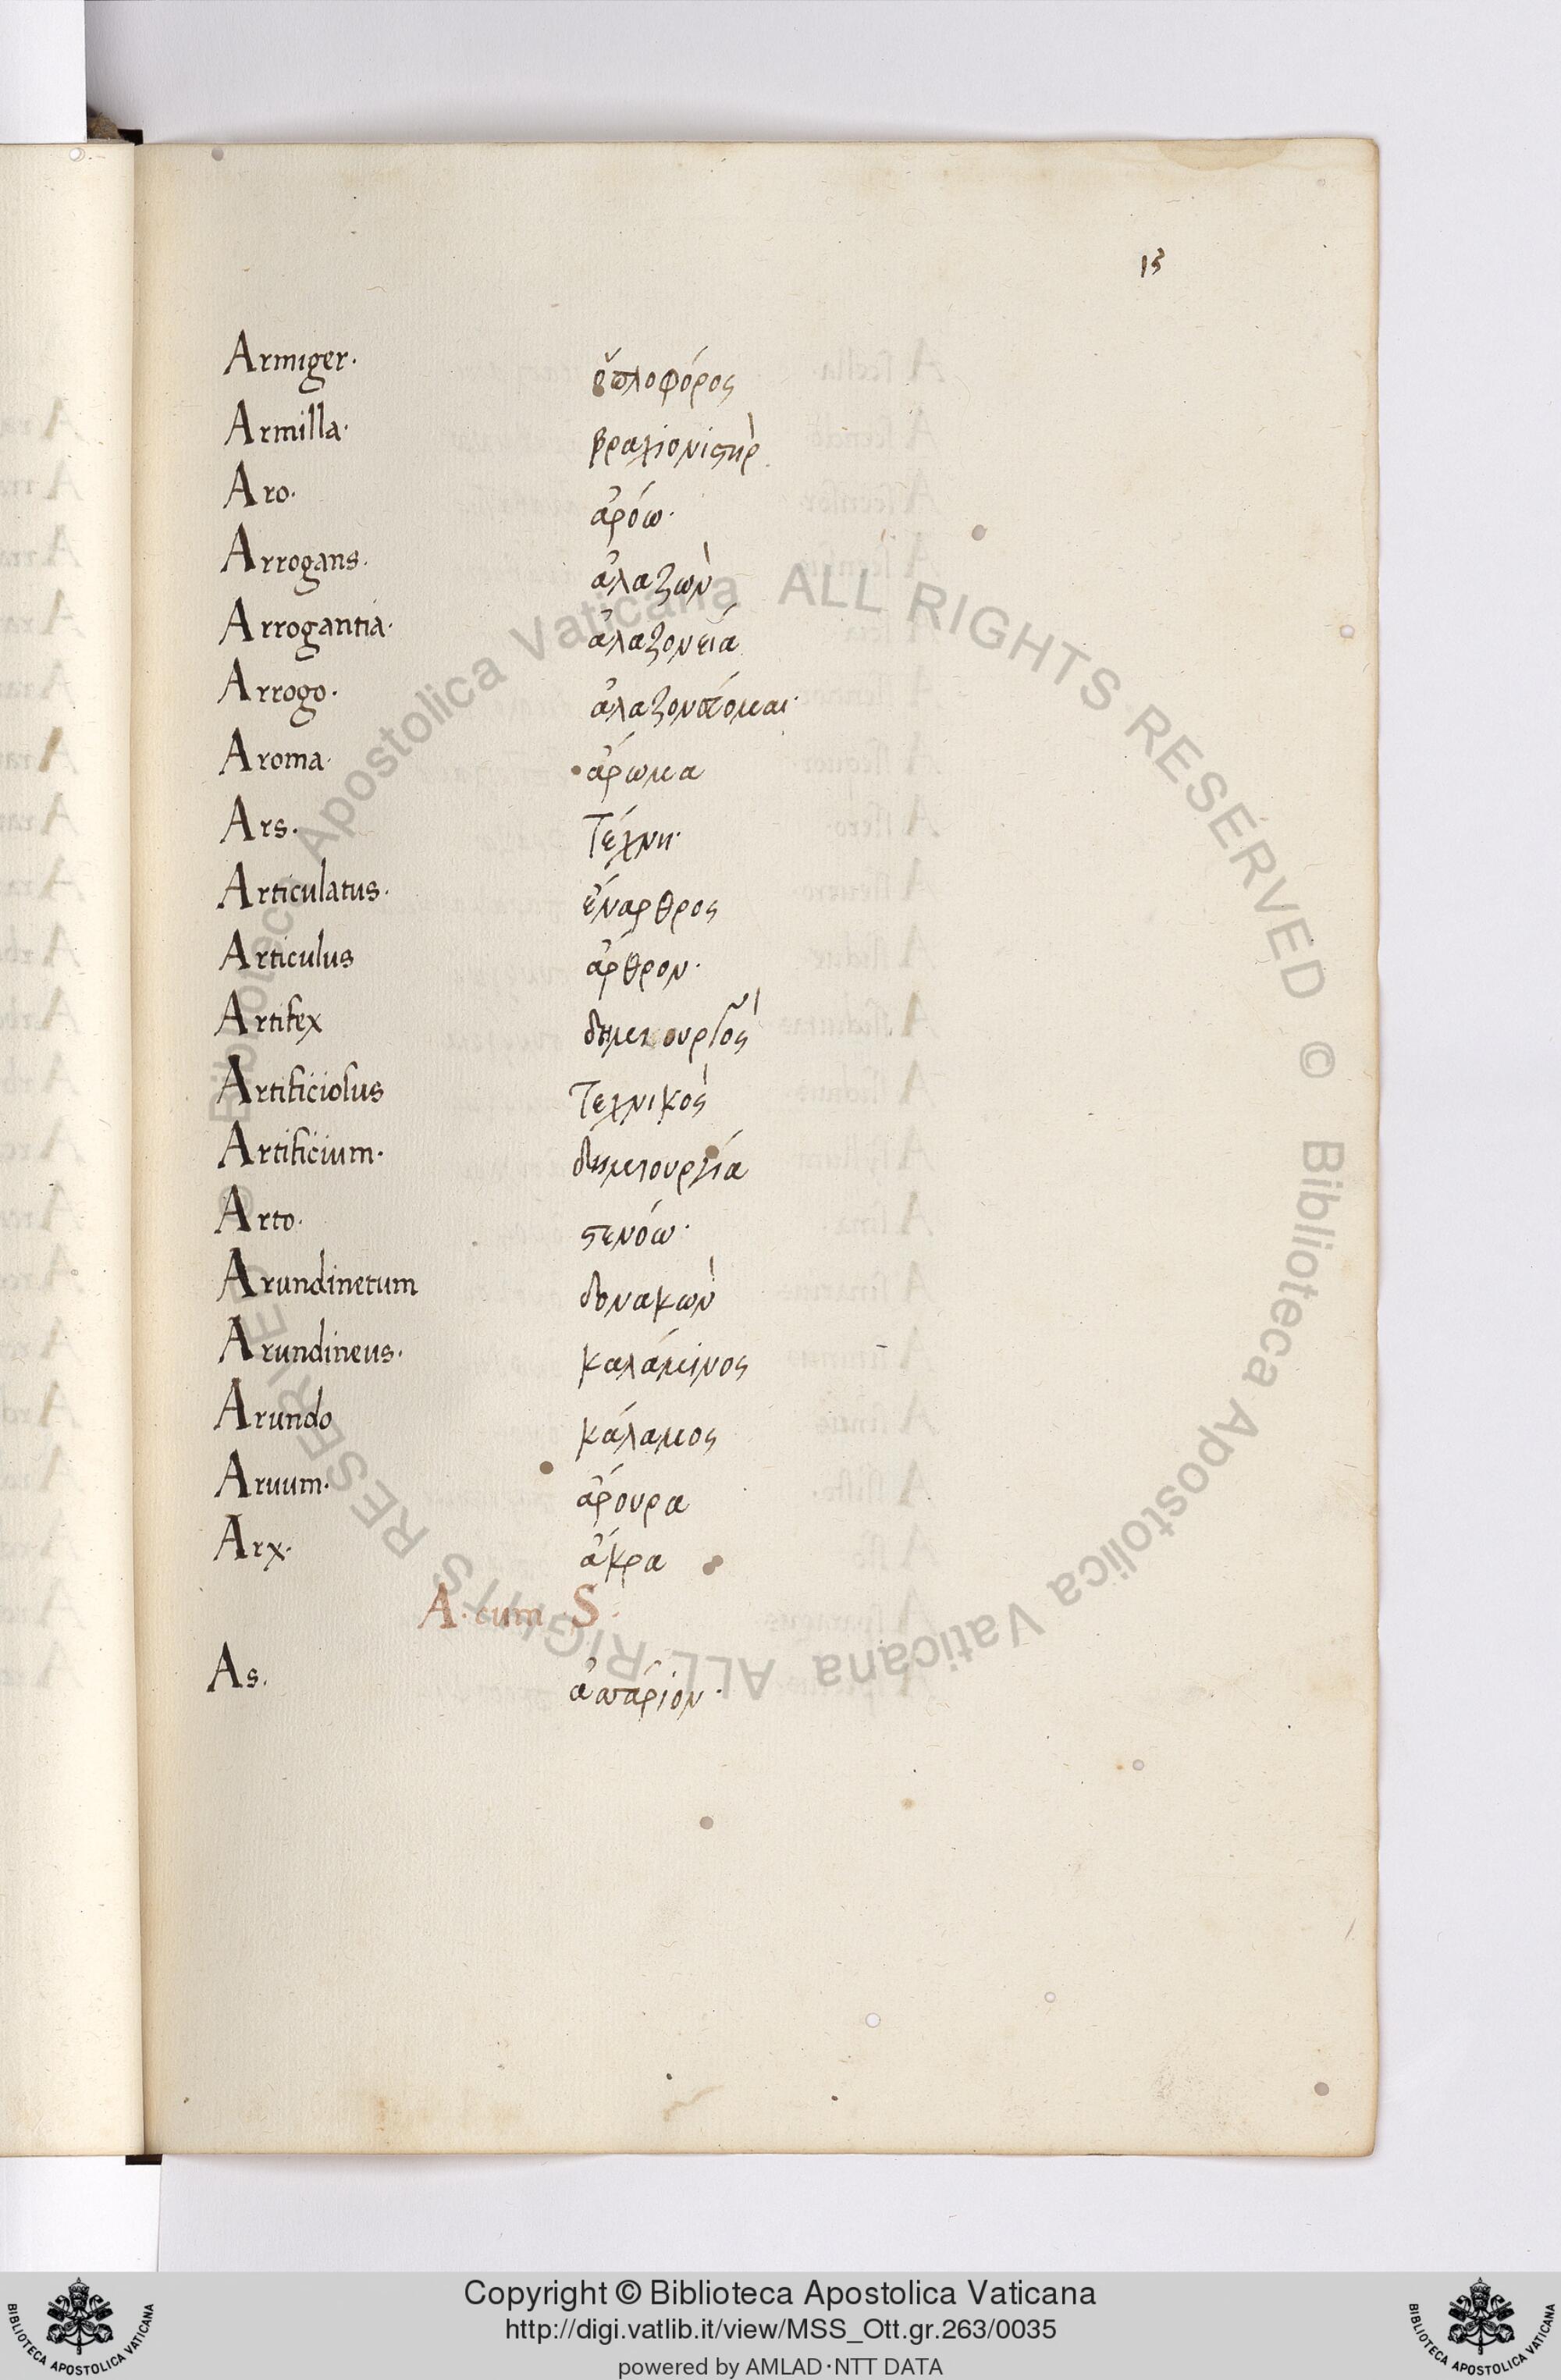 13
Armiger. ὁπλοφόρος
Armilla. βραχιονιστὴρ
Aro. ἀρόω.
Arrogans. ἀλαζὼν
Arrogantia. ἀλαζονεία
Arrogo. ἀλαζονεύομαι.
Aroma. ἄρωμα
Ars. Τέχνη.
Articulatus. ἔναρθρος
Articulus ἄρθρον.
Artifex δημιουργὸς
Artificiosus Τεχνικὸς
Artificium. δημιουργία
Arto. στενόω.
Arundinetum δονακὼν
Arundineus. καλάμινος
Arundo κάλαμος
Aruum. ἄρουρα
Arx. ἄκρα
A. cum S.
As. ἀσσάριον.
© Biblioteca Apostolica Vaticana ALL RIGHTS RESERVED © Biblioteca Apostolica Vaticana ALL RIGHTS RESERVED
Copyright © Biblioteca Apostolica Vaticana
http://digi.vatlib.it/view/MSS_Ott.gr.263/0035
powered by AMLAD·NTT DATA
BIBLIOTECA APOSTOLICA VATICANA
BIBLIOTECA APOSTOLICA VATICANA